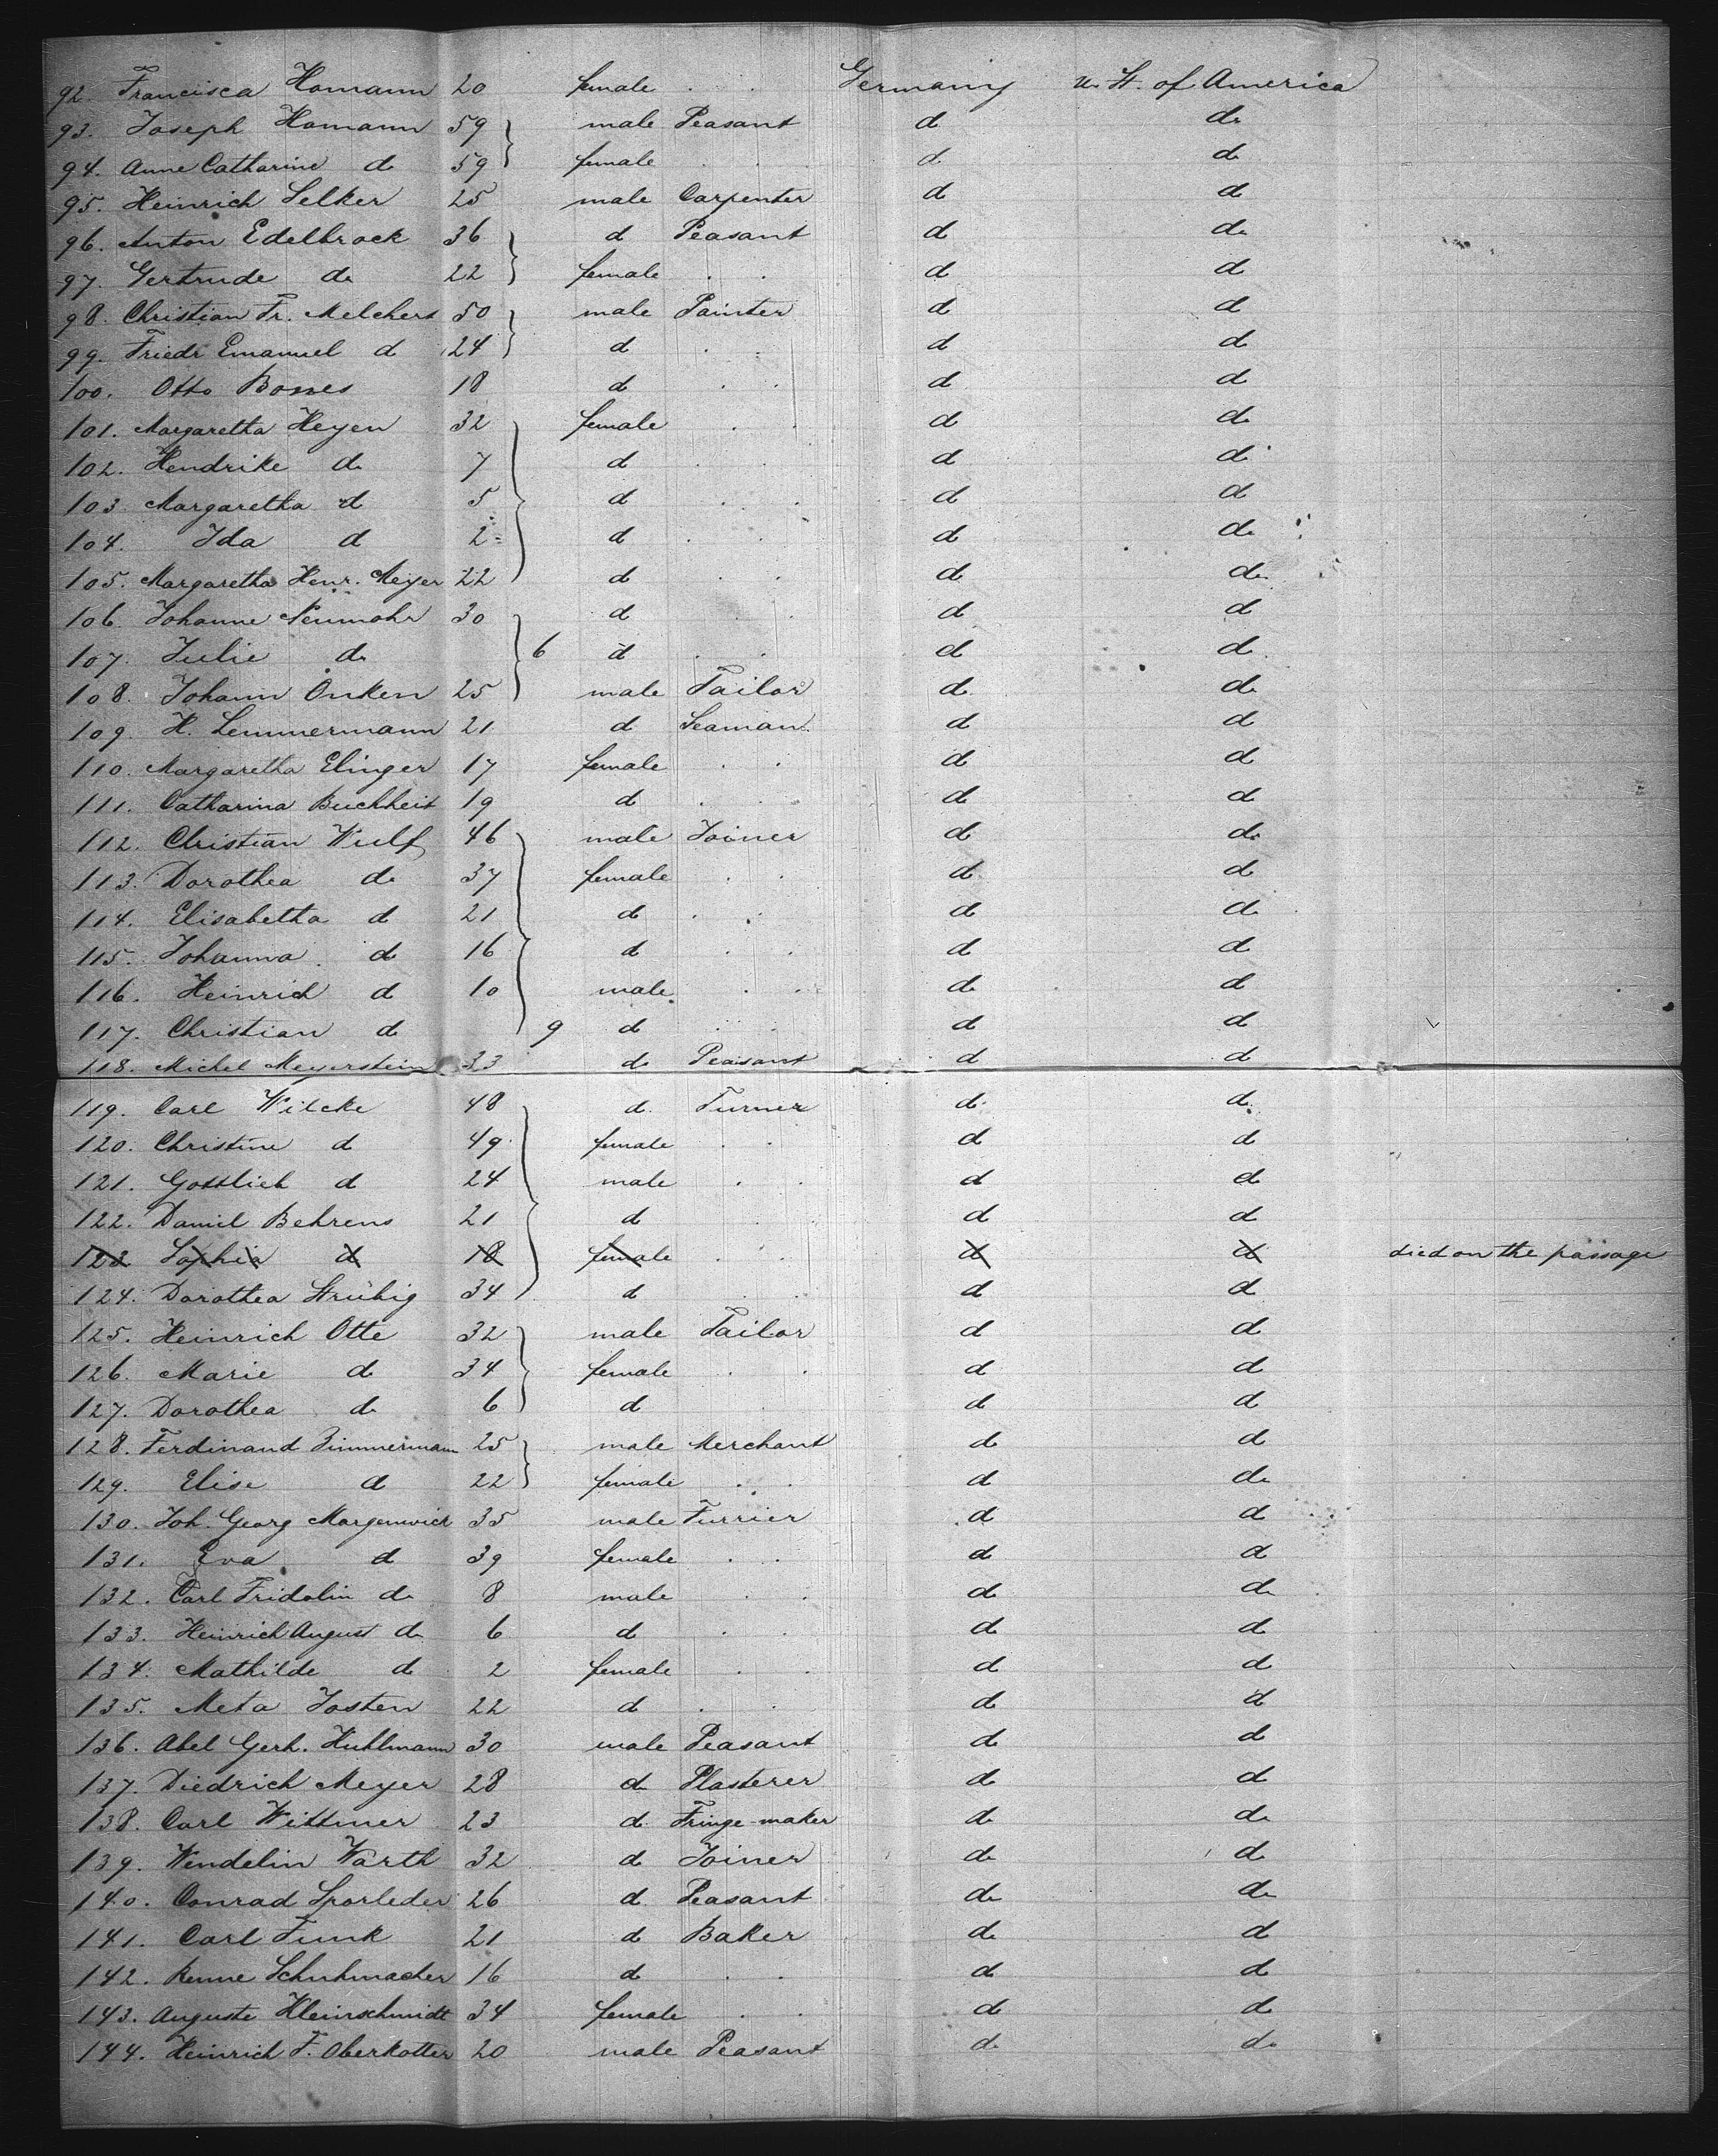 92. Francisca Homann 20 female Germany U. St. of America
93. Joseph Homann 59 male Peasant d d
94. Anne Catharine d 59 female d d
95. Heinrich Selker 25 male Carpenter d d
96. Anton Edelbrock 36 d Peasant d d
97. Gertrude d 22 female d d
98. Christian Fr. Melchers 50 male Painter d d
99. Friedr Emanuel d 24 d d d
100. Otto Bonnes 18 d d d
101. Margaretha Heyen 32 female d d
102. Hendrike d 7 d d d
103. Margaretha d 5 d d d
104. Ida d 2 d d d
105. Margaretha Henr. Meyer 22 d d d
106. Johanne Neumohr 30 d d d
107. Julie d 6 d d d
108. Johann Onken 25 male Tailor d d
109. H. Lemmermann 21 d Seaman d d
110. Margaretha Elinger 17 female d d
111. Catharina Buchheit 19 d d d
112. Christian Wulf 46 male Joiner d d
113. Dorothea d 37 female d d
114. Elisabetha d 21 d d d
115. Johanna d 16 d d d
116. Heinrich d 10 male d d
117. Christian d 9 d d d
118. Michel Meyerstein 33 d Peasant d d
119. Carl Wilcke 48 d Turner d d
120. Christine d 49 female d d
121. Gottlieb d 24 male d d
122. Daniel Behrens 21 d d d
123 Sophia d 18 female d d died on the passage
124. Dorothea Strübig 34 d d d
125. Heinrich Otte 32 male Tailor d d
126. Marie d 34 female d d
127. Dorothea d 6 d d d
128. Ferdinand Zimmermann 25 male Merchant d d
129. Elise d 22 female d d
130. Joh. Georg 35 male Furrier d d
131. Eva d 39 female d d
132. Carl Fridolin d 8 male d d
133. Heinrich August d 6 d d d
134. Mathilde d 2 female d d
135. Meta Josten 22 d d d
136. Abel Gerh. Kuhlmann 30 male Peasant d d
137. Diedrich Meyer 28 d Plasterer d d
138. Carl Wittmer 23 d Fringe-maker d d
139. Wendelin Warth 32 d Joiner d d
140. Conrad Sporleder 26 d Peasant d d
141. Carl Funk 21 d Baker d d
142. Schuhmacher 16 d d d
143. Auguste Kleinschmidt 34 female d d
144. Heinrich F. Oberkotter 20 male Peasant d d